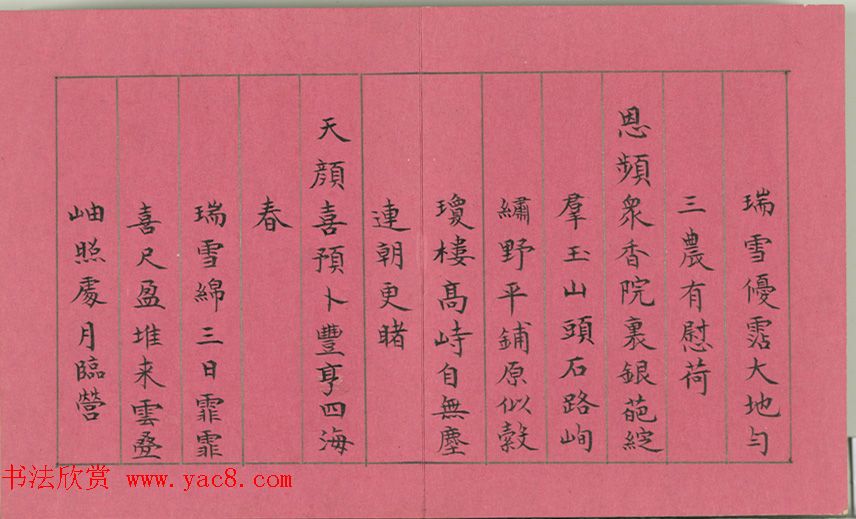 瑞雪優霑大地勻
三農有慰荷
恩頻衆香院裏銀葩綻
羣玉山頭石路峋
繡野平鋪原似穀
瓊樓髙峙自無塵
連朝更睹
天顔喜預卜豐亨四海
春
瑞雪綿三日霏霏
喜尺盈堆来雲疊
岫照處月臨營
书法欣赏 www.yac8.com